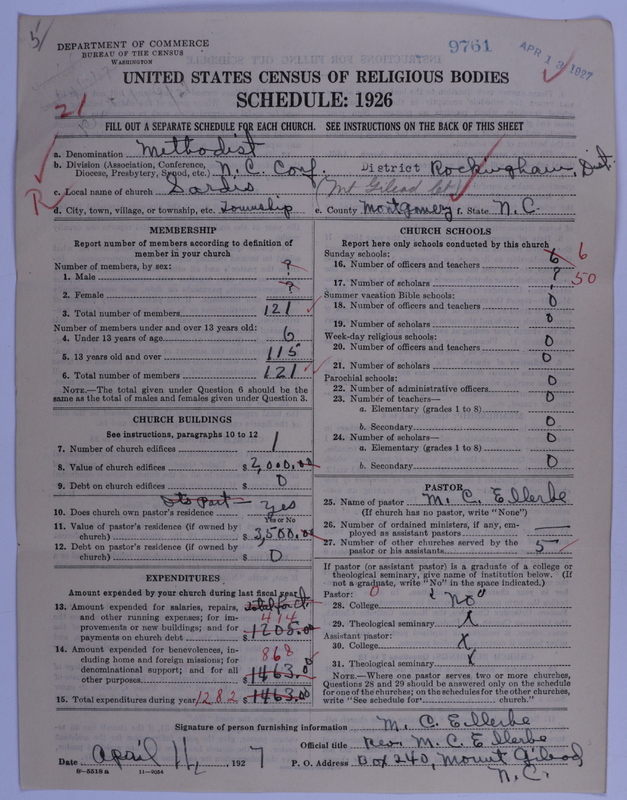 5/
DEPARTMENT OF COMMERCE
BUREAU OF THE CENSUS
WASHINGTON
9761
APR 13 1927
UNITED STATES CENSUS OF RELIGIOUS BODIES
SCHEDULE: 1926
21
FILL OUT A SEPARATE SCHEDULE FOR EACH CHURCH. SEE INSTRUCTIONS ON THE BACK OF THIS SHEET
a. Denomination Methodist
b. Division (Association, Conference, Diocese, Presbytery, Synod, etc.) N. C. Conf. District Rockingham Dist.
R
c. Local name of church Sardis (Mt Gilead Ct)
d. City, town, village, or township, etc. Township e. County Montgomery f. State N. C.
MEMBERSHIP
Report number of members according to definition of
member in your church
Number of members, by sex:
1. Male ?
2. Female ?
3. Total number of members 121
Number of members under and over 13 years old:
4. Under 13 years of age 6
5. 13 years old and over 115
6. Total number of members 121
NOTE.—The total given under Question 6 should be the
same as the total of males and females given under Question 3.
CHURCH BUILDINGS
See instructions, paragraphs 10 to 12
7. Number of church edifices 1
8. Value of church edifices $ 2,000.00
9. Debt on church edifices $ 0
Its Part =
10. Does church own pastor's residence yes
Yes or No
11. Value of pastor's residence (if owned by
church) $ 3,500.00
12. Debt on pastor's residence (if owned by
church) $ 0
EXPENDITURES
Amount expended by your church during last fiscal year
13. Amount expended for salaries, repairs, total for ct
and other running expenses; for im- 414
provements or new buildings; and for
payments on church debt $ 1205.00
14. Amount expended for benevolences, in- 868
cluding home and foreign missions; for
denominational support; and for all
other purposes $ 1463.00
15. Total expenditures during year 1282 $ 1463.00
CHURCH SCHOOLS
Report here only schools conducted by this church
Sunday schools:
16. Number of officers and teachers 6 6
17. Number of scholars ? 50
Summer vacation Bible schools:
18. Number of officers and teachers 0
19. Number of scholars 0
Week-day religious schools:
20. Number of officers and teachers 0
21. Number of scholars 0
Parochial schools:
22. Number of administrative officers 0
23. Number of teachers—
a. Elementary (grades 1 to 8) 0
b. Secondary 0
24. Number of scholars—
a. Elementary (grades 1 to 8) 0
b. Secondary 0
PASTOR
25. Name of pastor M. C. Ellerbe
(If church has no pastor, write "None")
26. Number of ordained ministers, if any, em-
ployed as assistant pastors —
27. Number of other churches served by the
pastor or his assistants 5
If pastor (or assistant pastor) is a graduate of a college or
theological seminary, give name of institution below. (If
not a graduate, write "No" in the space indicated.)
Pastor: 0
28. College "No"
29. Theological seminary x
Assistant pastor:
30. College x
31. Theological seminary x
NOTE.—Where one pastor serves two or more churches,
Questions 28 and 29 should be answered only on the schedule
for one of the churches; on the schedules for the other churches,
write "See schedule for church."
Signature of person furnishing information M. C. Ellerbe
Official title Rev. M. C. Ellerbe
Date April 11, 1927 P. O. Address Box 240, Mount Gilead
N. C.
8-5518 a 11-9054